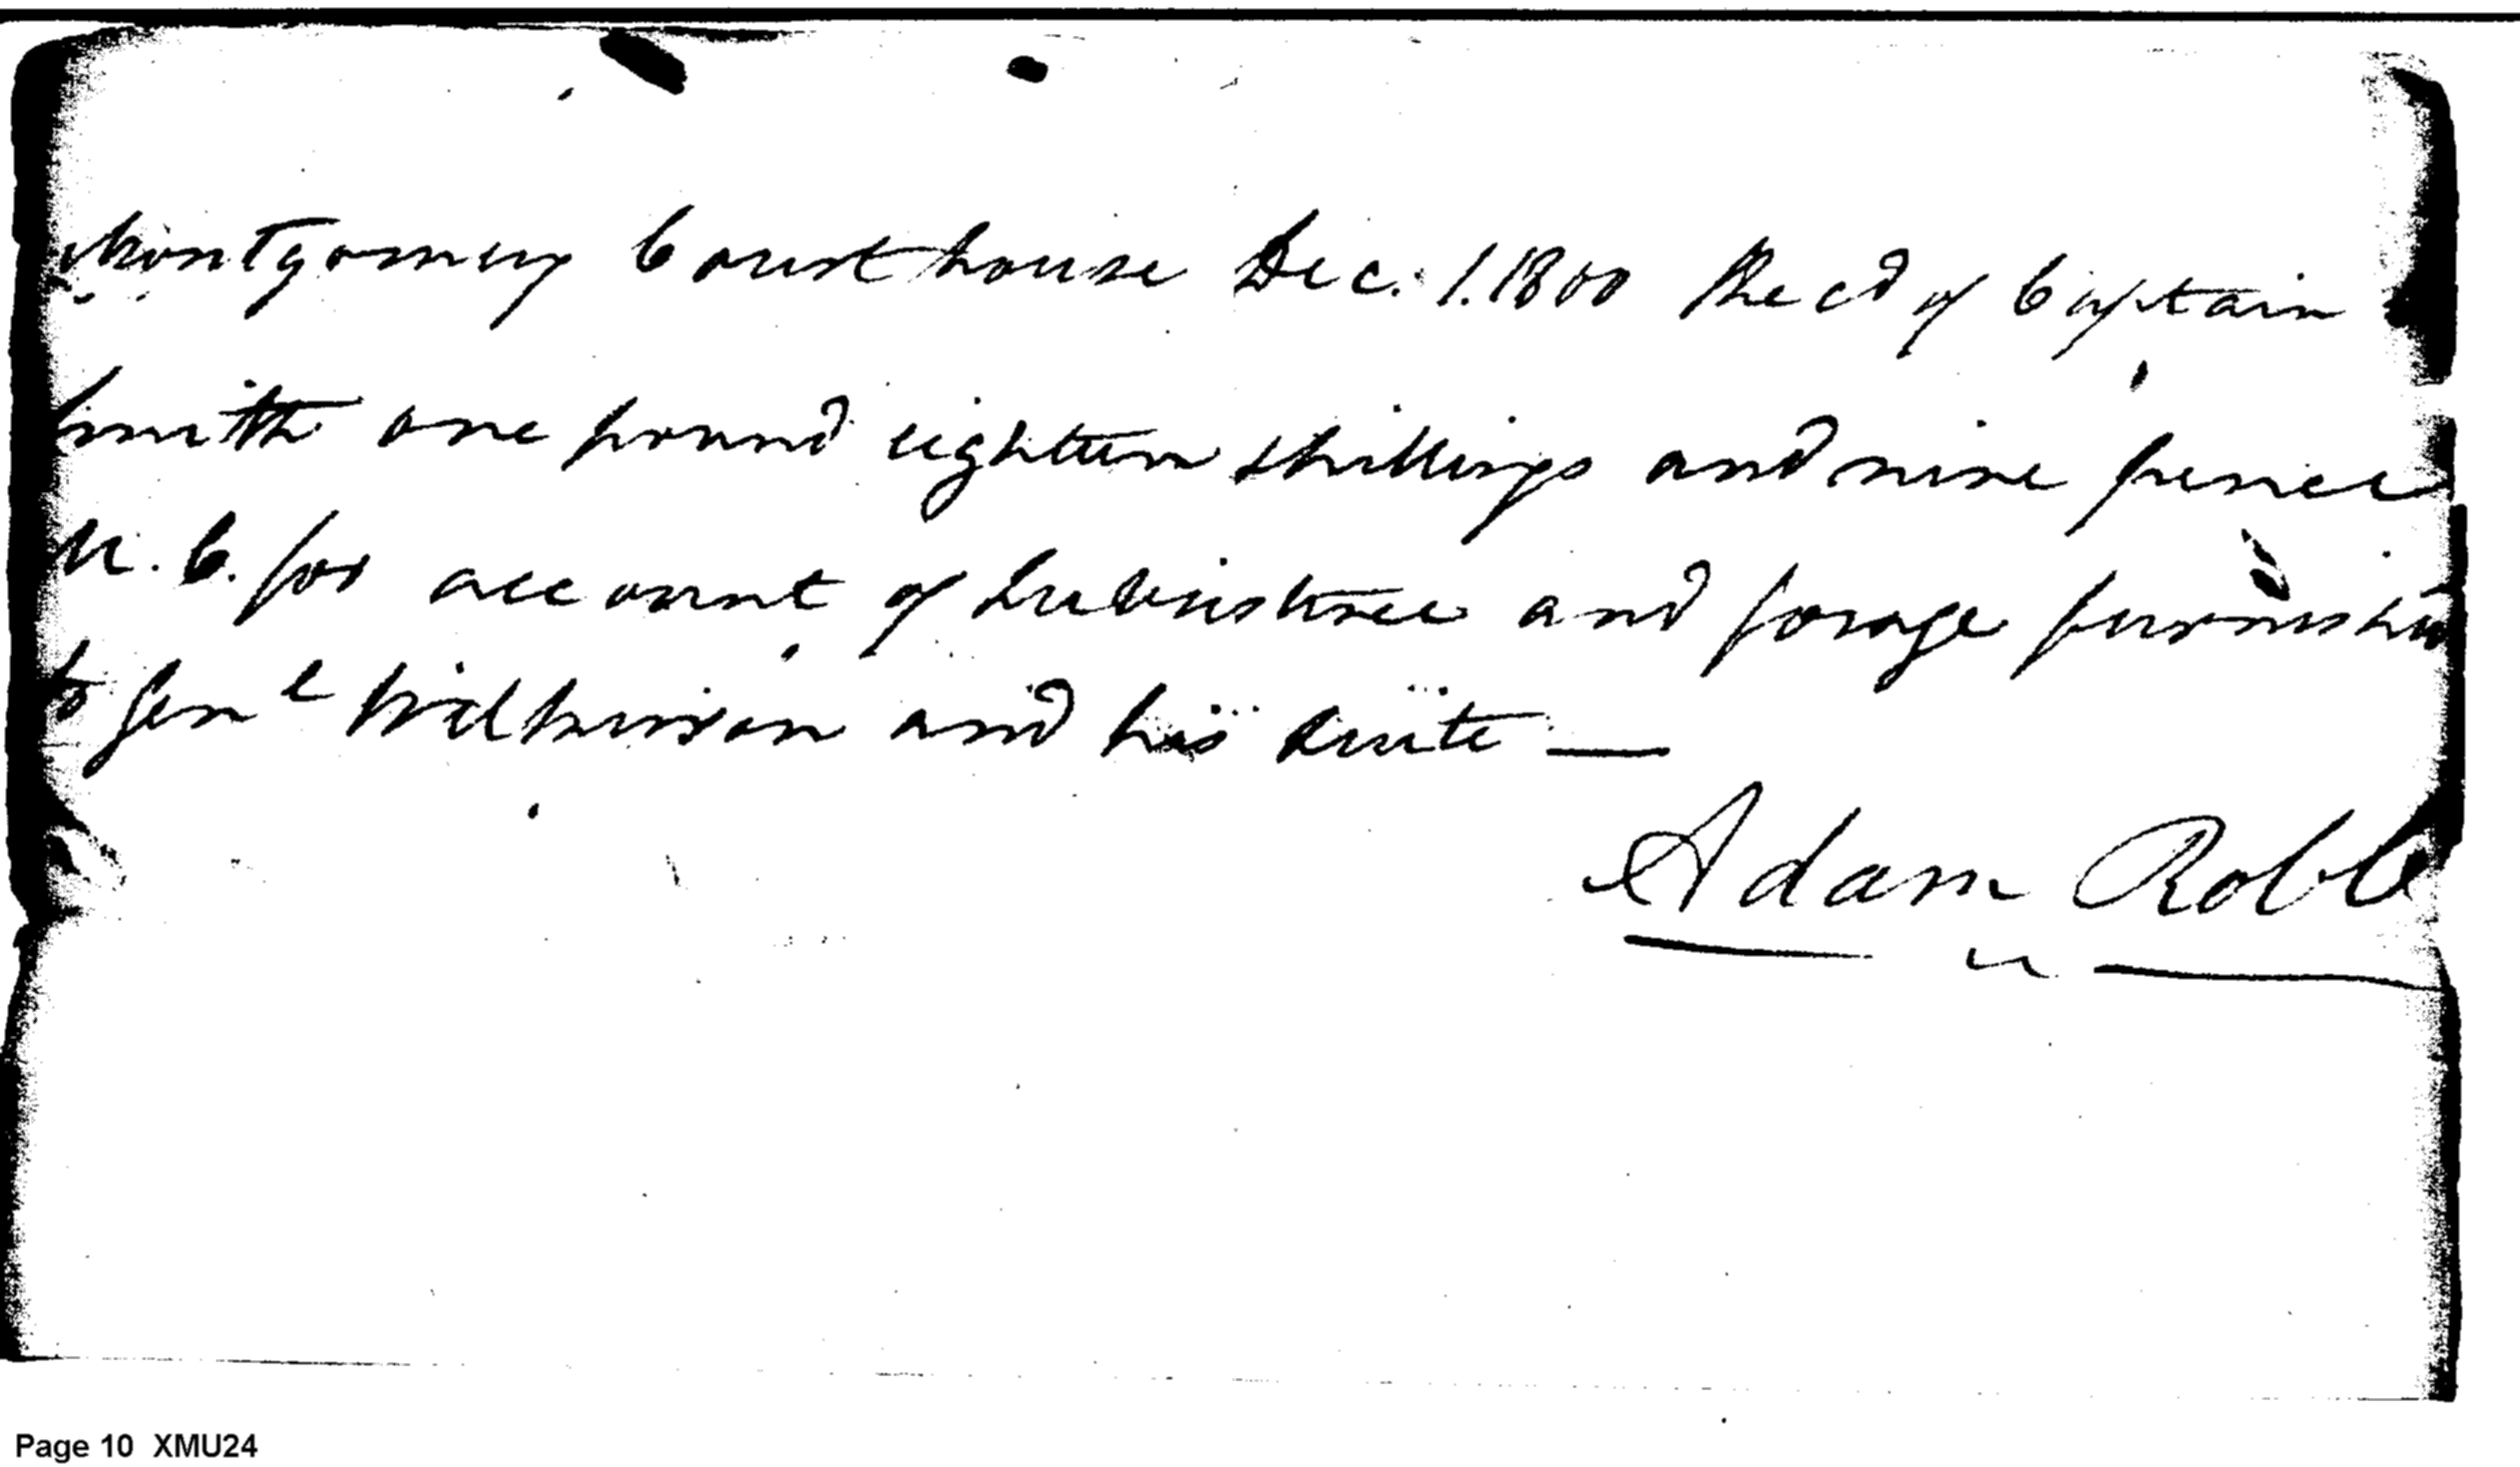 Montgomery Courthouse Dec. 1. 1800 Recd of Captain
Smith one pound eighteen shillings and nine pence
N. C. for account of Subsistence and forage furnished
to Genl Wilkinson and his Suite —
Adam Robb
Page 10 XMU24